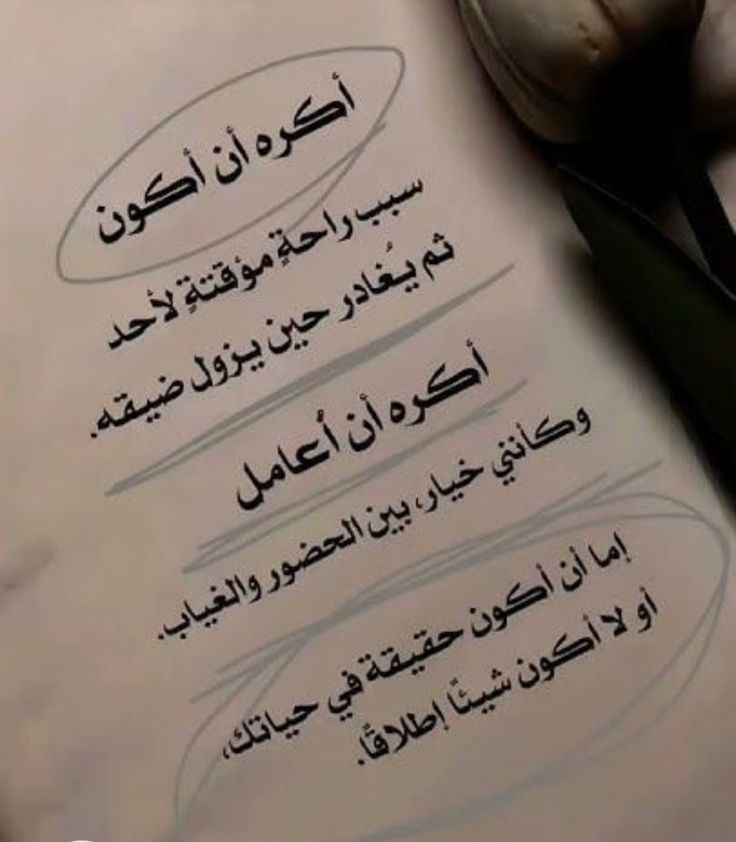 أكره أن أكون
سبب راحةٍ مؤقتةٍ لأحد
ثم يُغادر حين يزول ضيقه.
أكره أن أُعامل
وكأنني خيار، بين الحضور والغياب.
إما أن أكون حقيقة في حياتك،
أو لا أكون شيئًا إطلاقًا.